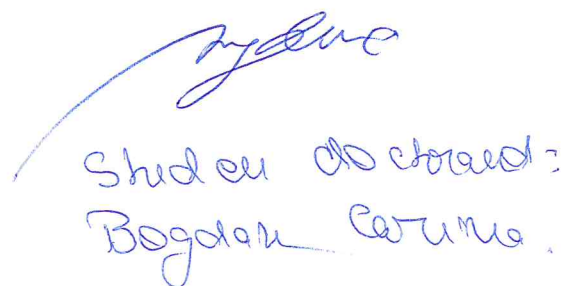 Student doctorand:
Bogdan Corina.